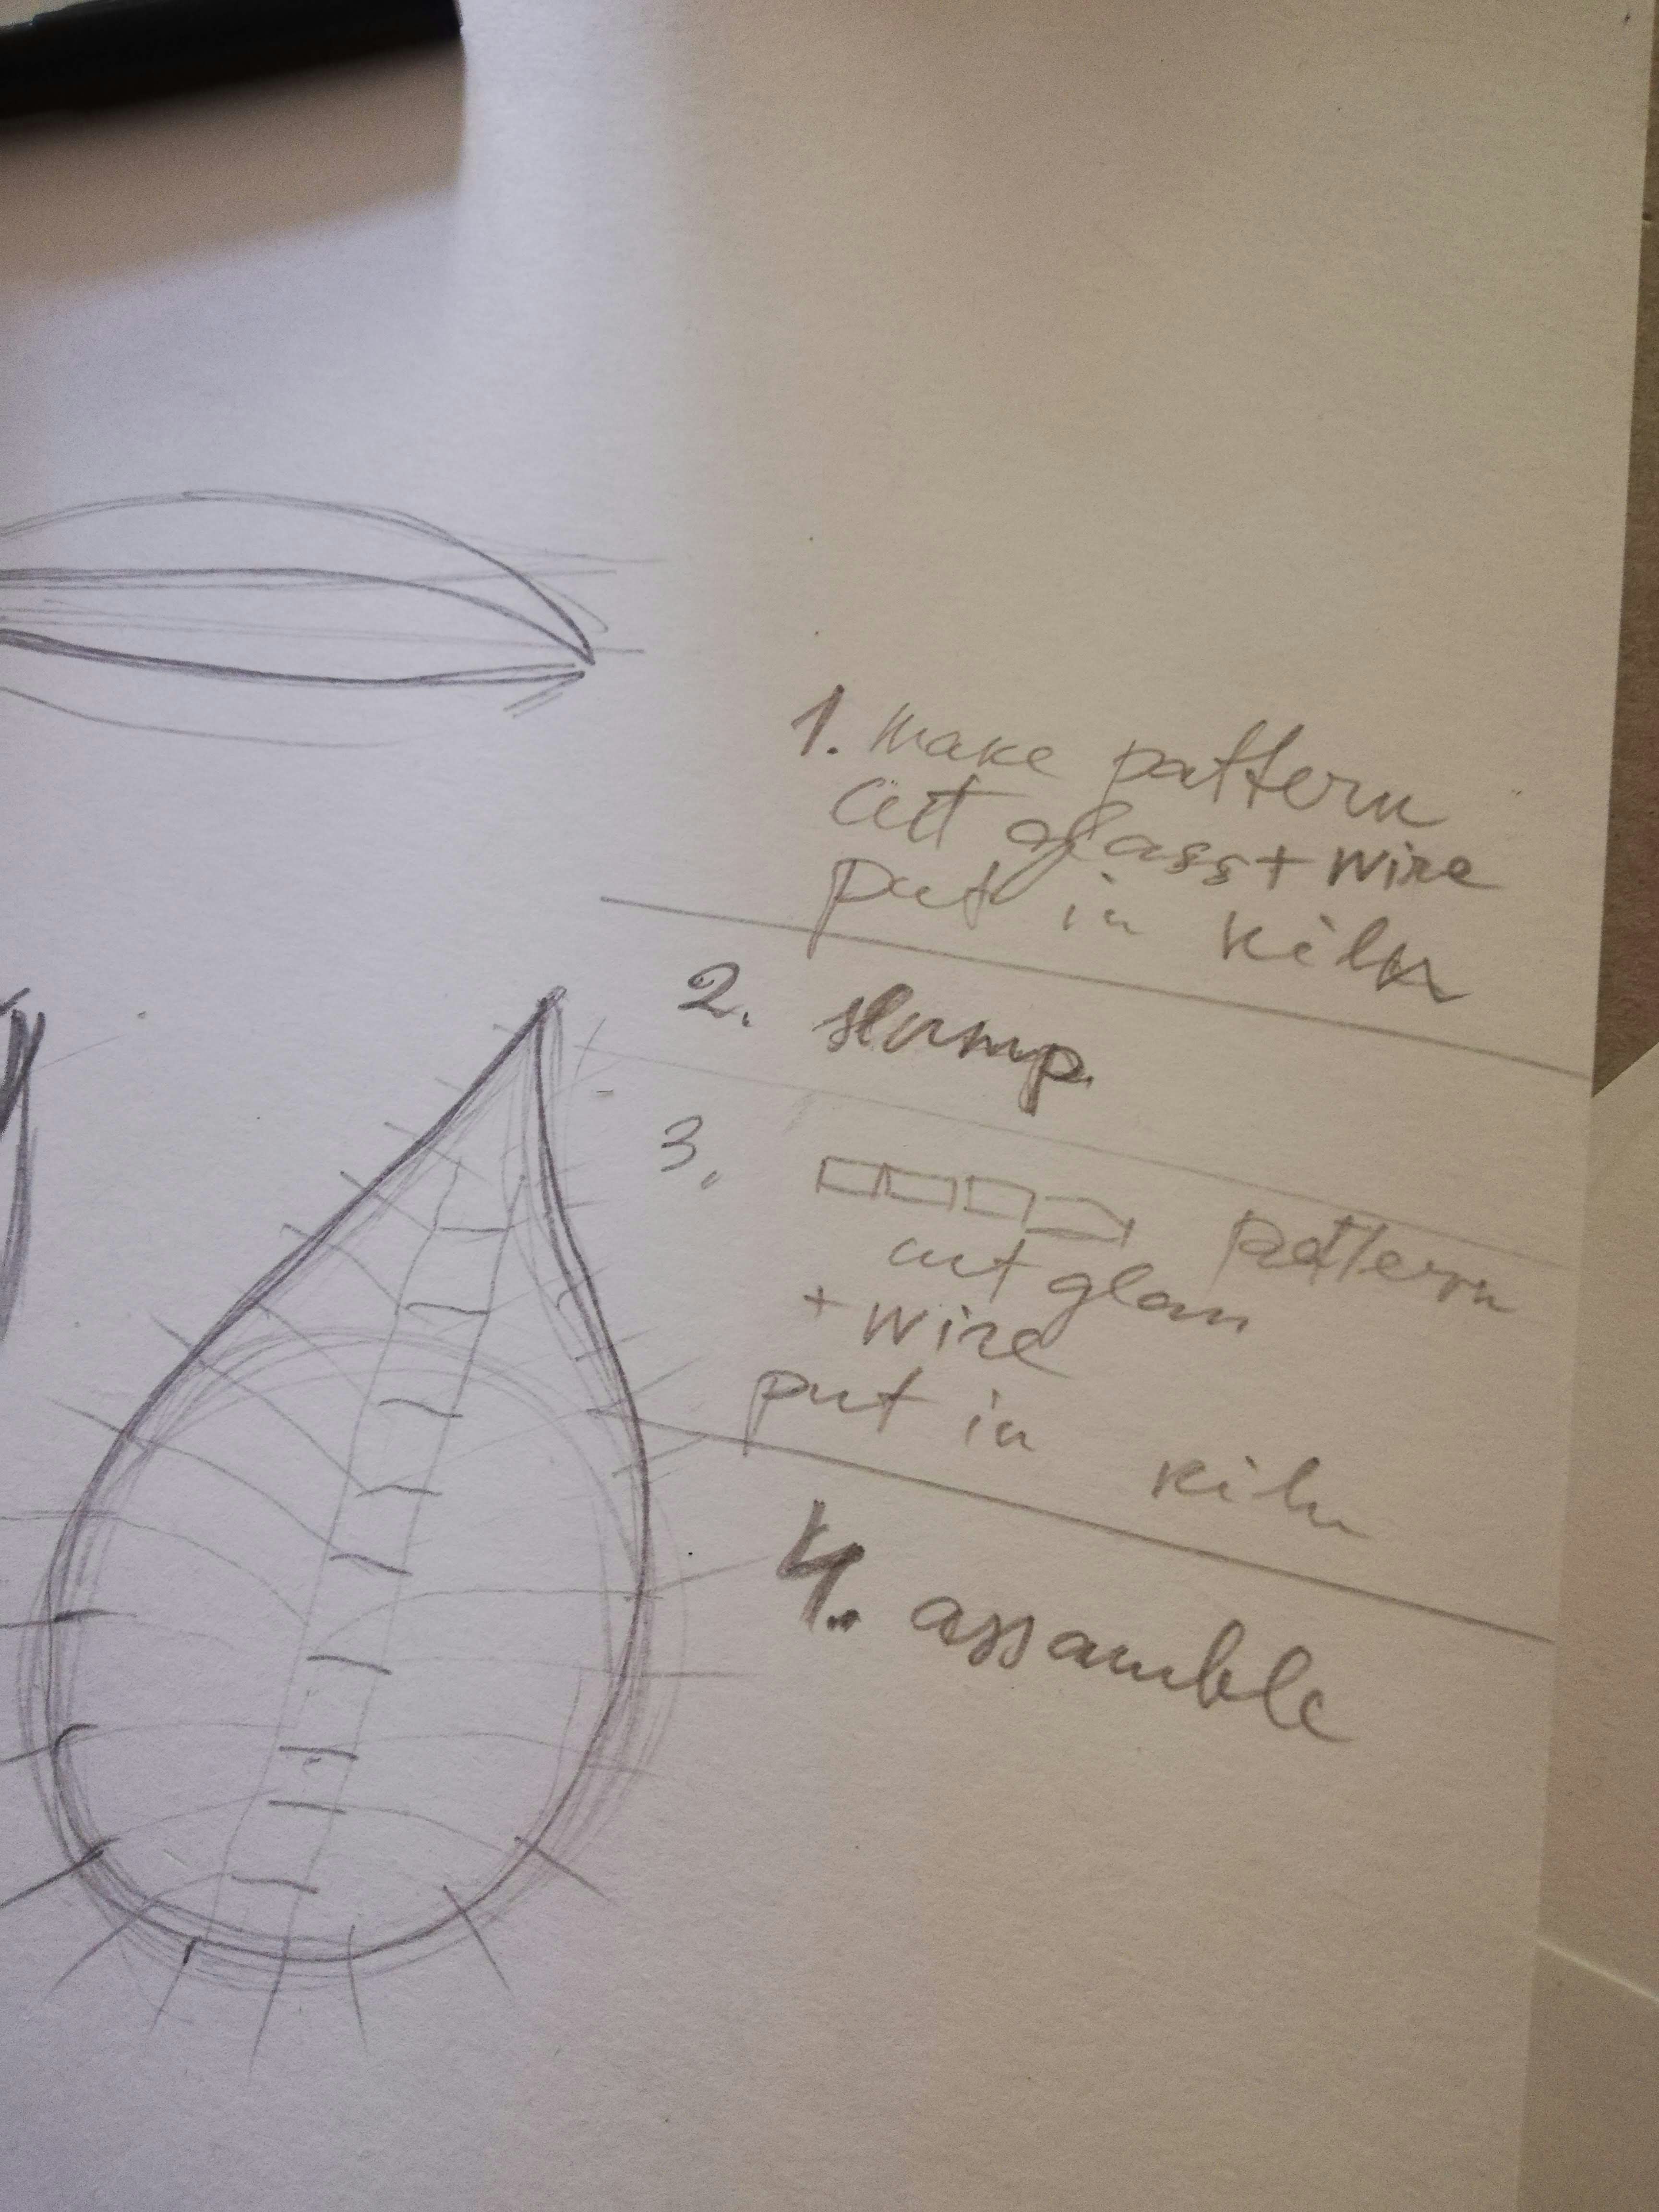 1. make pattern
cut glass + wire
put in kiln
2. slump.
3. pattern
cut glass
+ wire
put in kiln
4. assamble